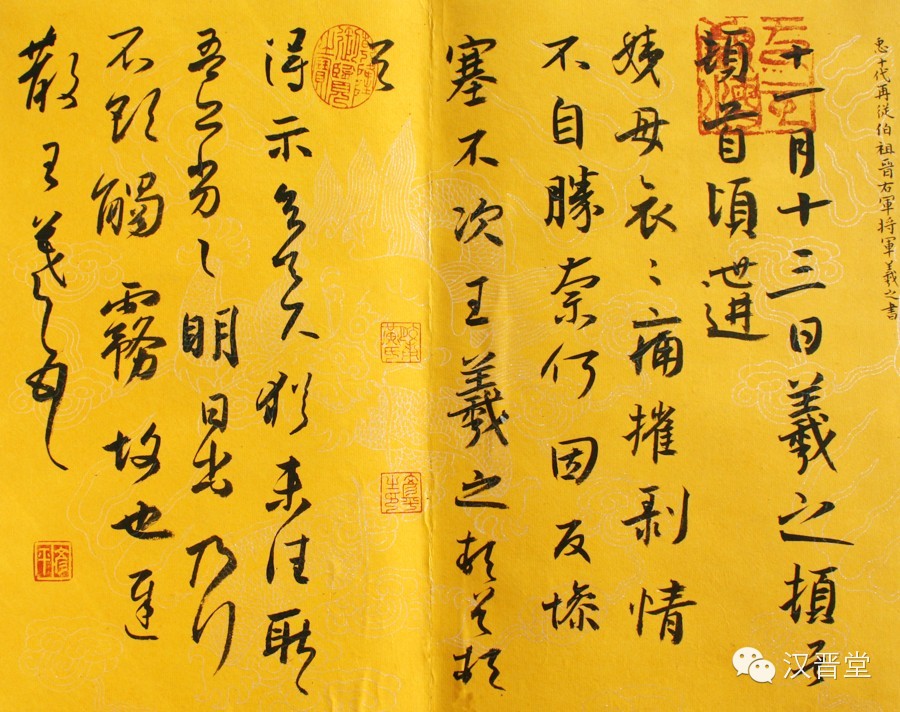 十代再從伯祖晉右軍將軍羲之書
十一月十三日羲之頓首
頓首頃
姨母哀〻痛摧剥情
不自勝奈何因反慘
塞不次王羲之頓首頓
首
得示知足下猶未佳耿〻
吾亦劣〻明日出乃行
不欲觸霧故也遲
散王羲之頓首
汉晋堂